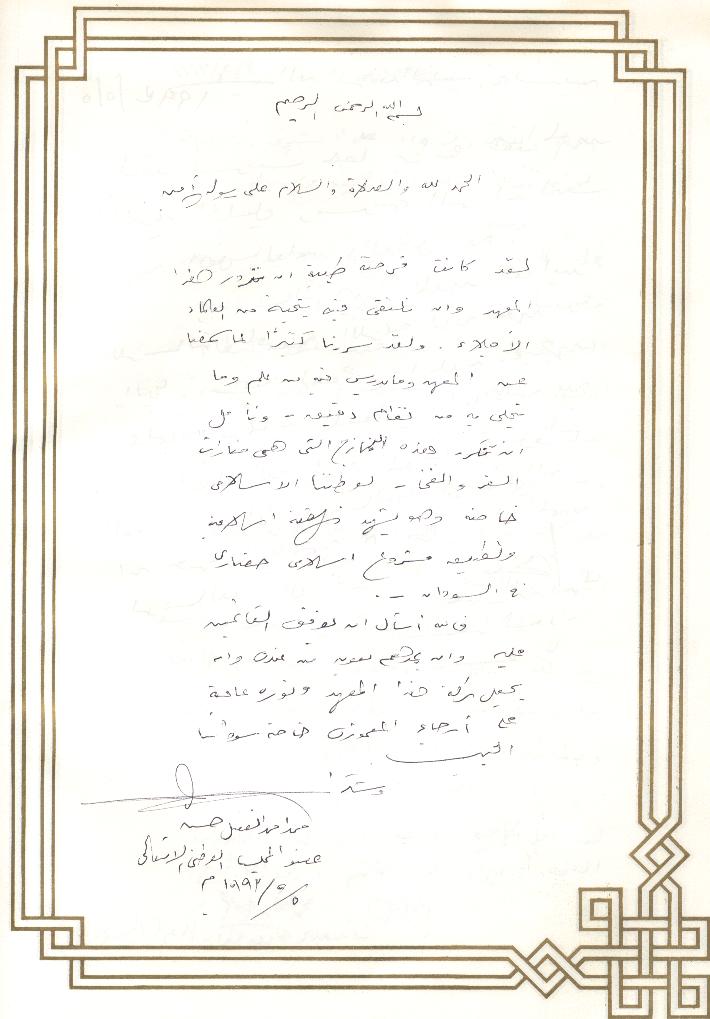 بسم الله الرحمن الرحيم
الحمد لله والصلاة والسلام على رسوله الأمين
لقد كانت فرصة طيبة ان نزور هذا
المعهد وان نلتقي فيه بنخبة من العلماء
الأجلاء . ولقد سررنا كثيرًا لما سمعنا
عن المعهد وما يدرس فيه من علم وما
يتحلى به من نظام دقيق - ونأمل
ان تتكرر هذه النماذج التي هي منارات
العز والفخر - لوطننا الاسلامي
خاصة وهو يشهد نهضة اسلامية
وتطبيق مشروع اسلامي حضاري
في السودان -.
فالله أسأل ان يوفق القائمين
عليه وان يمدهم بعون من عنده وان
يجعل بركة هذا المعهد ونوره عامة
على أرجاء المعمورة خاصة سوداننا
الحبيب
وشكراً
احمد الفضل حسن
عضو المجلس الوطني الانتقالي
٥/٥/١٩٩٢م